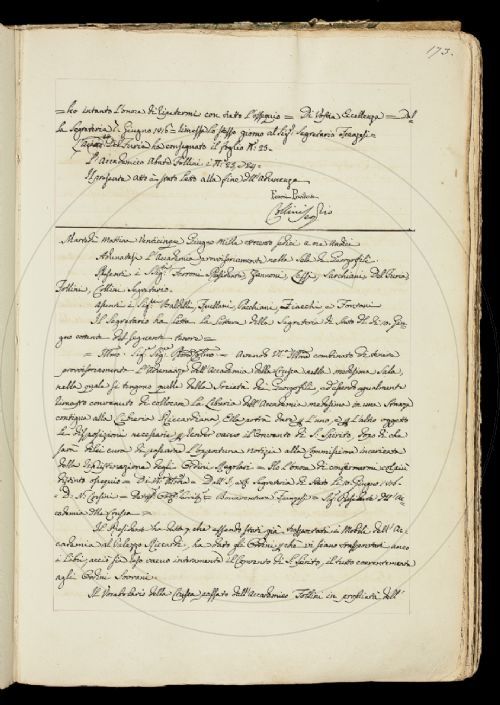 173.
= ho intanto l'onore di ripetermi con distinto ossequio = Di Vostra Eccellenza = Dal-
la Segreteria Giugno 1816 = lo stesso giorno al Sig.r Segretario
Del Furia ha consegnato il foglio N.° 25.
L'Accademico Abate Follini i N.i 23, e 24.
Il presente atto è stato letto alla fine dell'Adunanza
Collini Seg.rio
Martedì Mattina Venticinque Giugno Mille ottocento sedici a ore undici
Adunatasi l'Accademia provvisoriamente nella Sala de' Georgofili.
Presenti i Sig.ri Ferroni Presidente, Zannoni, Lessi, Sarchiani, Del Furia
Follini, Collini Segretario.
Assenti i Sig.ri Baldelli, Fiacchi e Fontani
Il Segretario ha letta la Lettera della Segreteria di Stato de dì 10. Giu-
gno corrente del seguente tenore =
= Illmo. Sig. Sig. = Avendo combinato di tenere
provvisoriamente l'Adunanze dell'Accademia della Crusca nella medesima Sala,
nella quale si tengono quelle della Società de' Georgofili, ed essendo egualmente
rimasto convenuto di collocare la Libreria dell'Accademia medesima in una Stanza
contigua alla Libreria Riccardiana, Ella potrà dare per l'uno, e per l'altro oggetto
le disposizioni necessarie per render vacuo il Convento di S. Spirito, dopo di che
sarà della cura di passarne l'opportuna notizia alla Commissione incaricata
della degli Ordini Regolari = Ho l'onore di confermarmi col più
distinto ossequio = Di = Dall'I. e R. Segreteria di Stato li 10. Giugno 1816.
= D. N. Corsini = = Bonaventura = Sig. Presidente dell'Ac-
cademia della Crusca =
Il Presidente ha detto, che essendo stati già trasportati i Mobili dell'Ac-
cademia al Palazzo Riccardi, ha dato gli Ordini, che vi siano trasportati anco
i Libri, acciò sia reso vacuo intieramente il Convento di S. Spirito, il tutto coerentemente
agli Ordini Sovrani.
Il Vocabolario della Crusca dall'Accademico Follini in dell'